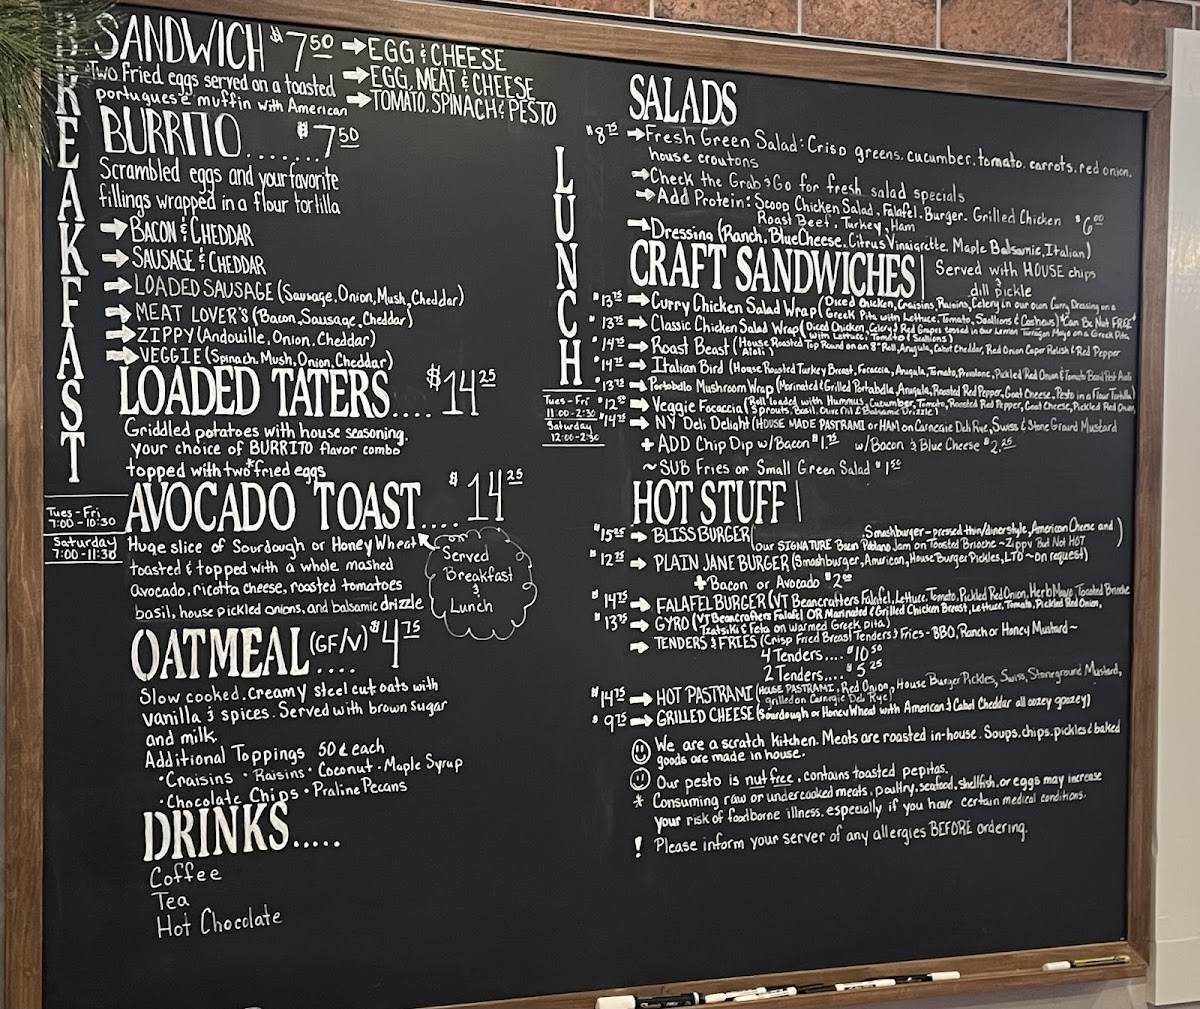 BREAKFAST
SANDWICH $7 50
Two fried eggs served on a toasted
portuguese muffin with American
→ EGG & CHEESE
→ EGG, MEAT & CHEESE
→ TOMATO, SPINACH & PESTO
BURRITO ....... $7 50
Scrambled eggs and your favorite
fillings wrapped in a flour tortilla
→ BACON & CHEDDAR
→ SAUSAGE & CHEDDAR
→ LOADED SAUSAGE (Sausage, Onion, Mush, Cheddar)
→ MEAT LOVER'S (Bacon, Sausage, Cheddar)
→ ZIPPY (Andouille, Onion, Cheddar)
→ VEGGIE (Spinach, Mush, Onion, Cheddar)
LOADED TATERS.... $14 25
Griddled potatoes with house seasoning.
your choice of BURRITO flavor combo
topped with two* fried eggs
Tues - Fri
7:00 - 10:30
Saturday
7:00 - 11:30
AVOCADO TOAST.... $14 25
Huge slice of Sourdough or Honey Wheat
toasted & topped with a whole mashed
avocado, ricotta cheese, roasted tomatoes
basil, house pickled onions, and balsamic drizzle
Served
Breakfast
&
Lunch
OATMEAL (GF/V) .... $4 75
Slow cooked, creamy steel cut oats with
vanilla & spices. Served with brown sugar
and milk.
Additional Toppings 50¢ each
• Craisins • Raisins • Coconut • Maple Syrup
• Chocolate Chips • Praline Pecans
DRINKS.....
Coffee
Tea
Hot Chocolate
LUNCH
Tues - Fri
11:00 - 2:30
Saturday
12:00 - 2:30
SALADS
$8 75 → Fresh Green Salad: Crisp greens, cucumber, tomato, carrots, red onion,
house croutons
→ Check the Grab & Go for fresh salad specials
→ Add Protein: Scoop Chicken Salad, Falafel, Burger, Grilled Chicken $6 00
Roast Beef, Turkey, Ham
→ Dressing (Ranch, Blue Cheese, Citrus Vinaigrette, Maple Balsamic, Italian)
CRAFT SANDWICHES | Served with HOUSE chips
& dill pickle
$13 75 → Curry Chicken Salad Wrap (Diced Chicken, Craisins, Raisins, Celery in our own Curry Dressing on a
Greek Pita with Lettuce, Tomato, Scallions & Cashews) *Can Be Nut FREE*
$13 75 → Classic Chicken Salad Wrap (Diced Chicken, Celery & Red Grapes tossed in our Lemon Tarragon Mayo on a Greek Pita
with Lettuce, Tomato & Scallions)
$14 75 → Roast Beast (House Roasted Top Round on an 8" Roll, Arugula, Cabot Cheddar, Red Onion Caper Relish & Red Pepper
Aioli)
$14 75 → Italian Bird (House Roasted Turkey Breast, Focaccia, Arugula, Tomato, Provolone, Pickled Red Onion & Tomato Basil Pesto Aioli)
$13 75 → Portobello Mushroom Wrap (Marinated & Grilled Portabella, Arugula, Roasted Red Pepper, Goat Cheese, Pesto in a Flour Tortilla)
$12 75 → Veggie Focaccia (Roll loaded with Hummus, Cucumber, Tomato, Roasted Red Pepper, Goat Cheese, Pickled Red Onion,
Sprouts, Basil, Olive Oil & Balsamic Drizzle)
$14 75 → NY Deli Delight (HOUSE MADE PASTRAMI or HAM on Carnegie Deli Rye, Swiss & Stone Ground Mustard
+ ADD Chip Dip w/Bacon $1.75 w/Bacon & Blue Cheese $2.25
~ SUB Fries or Small Green Salad $1 50
HOT STUFF |
$15 25 → BLISS BURGER (Smashburger - pressed thin/diner style, American Cheese and
Our SIGNATURE Bacon Poblano Jam on Toasted Brioche ~ Zippy But Not HOT)
$12 75 → PLAIN JANE BURGER (Smashburger, American, House Burger Pickles, LTO ~ on request)
+ Bacon or Avocado $2 00
$14 75 → FALAFEL BURGER (VT Beancrafters Falafel, Lettuce, Tomato, Pickled Red Onion, Herb Mayo, Toasted Brioche
$13 75 → GYRO (VT Beancrafters Falafel OR Marinated & Grilled Chicken Breast, Lettuce, Tomato, Pickled Red Onion,
Tzatsiki & Feta on Warmed Greek pita)
→ TENDERS & FRIES (Crisp Fried Breast Tenders & Fries - BBQ, Ranch or Honey Mustard ~
4 Tenders.... $10 50
2 Tenders.... $5 25
$14 75 → HOT PASTRAMI (HOUSE PASTRAMI, Red Onion, House Burger Pickles, Swiss, Stoneground Mustard,
grilled on Carnegie Deli Rye)
$9 75 → GRILLED CHEESE (Sourdough or Honey Wheat with American & Cabot Cheddar all oozey goozey)
We are a scratch kitchen. Meats are roasted in-house. Soups, chips, pickles & baked
goods are made in house.
Our pesto is nut free, contains toasted pepitas.
* Consuming raw or undercooked meats, poultry, seafood, shellfish, or eggs may increase
your risk of foodborne illness, especially if you have certain medical conditions.
! Please inform your server of any allergies BEFORE ordering.